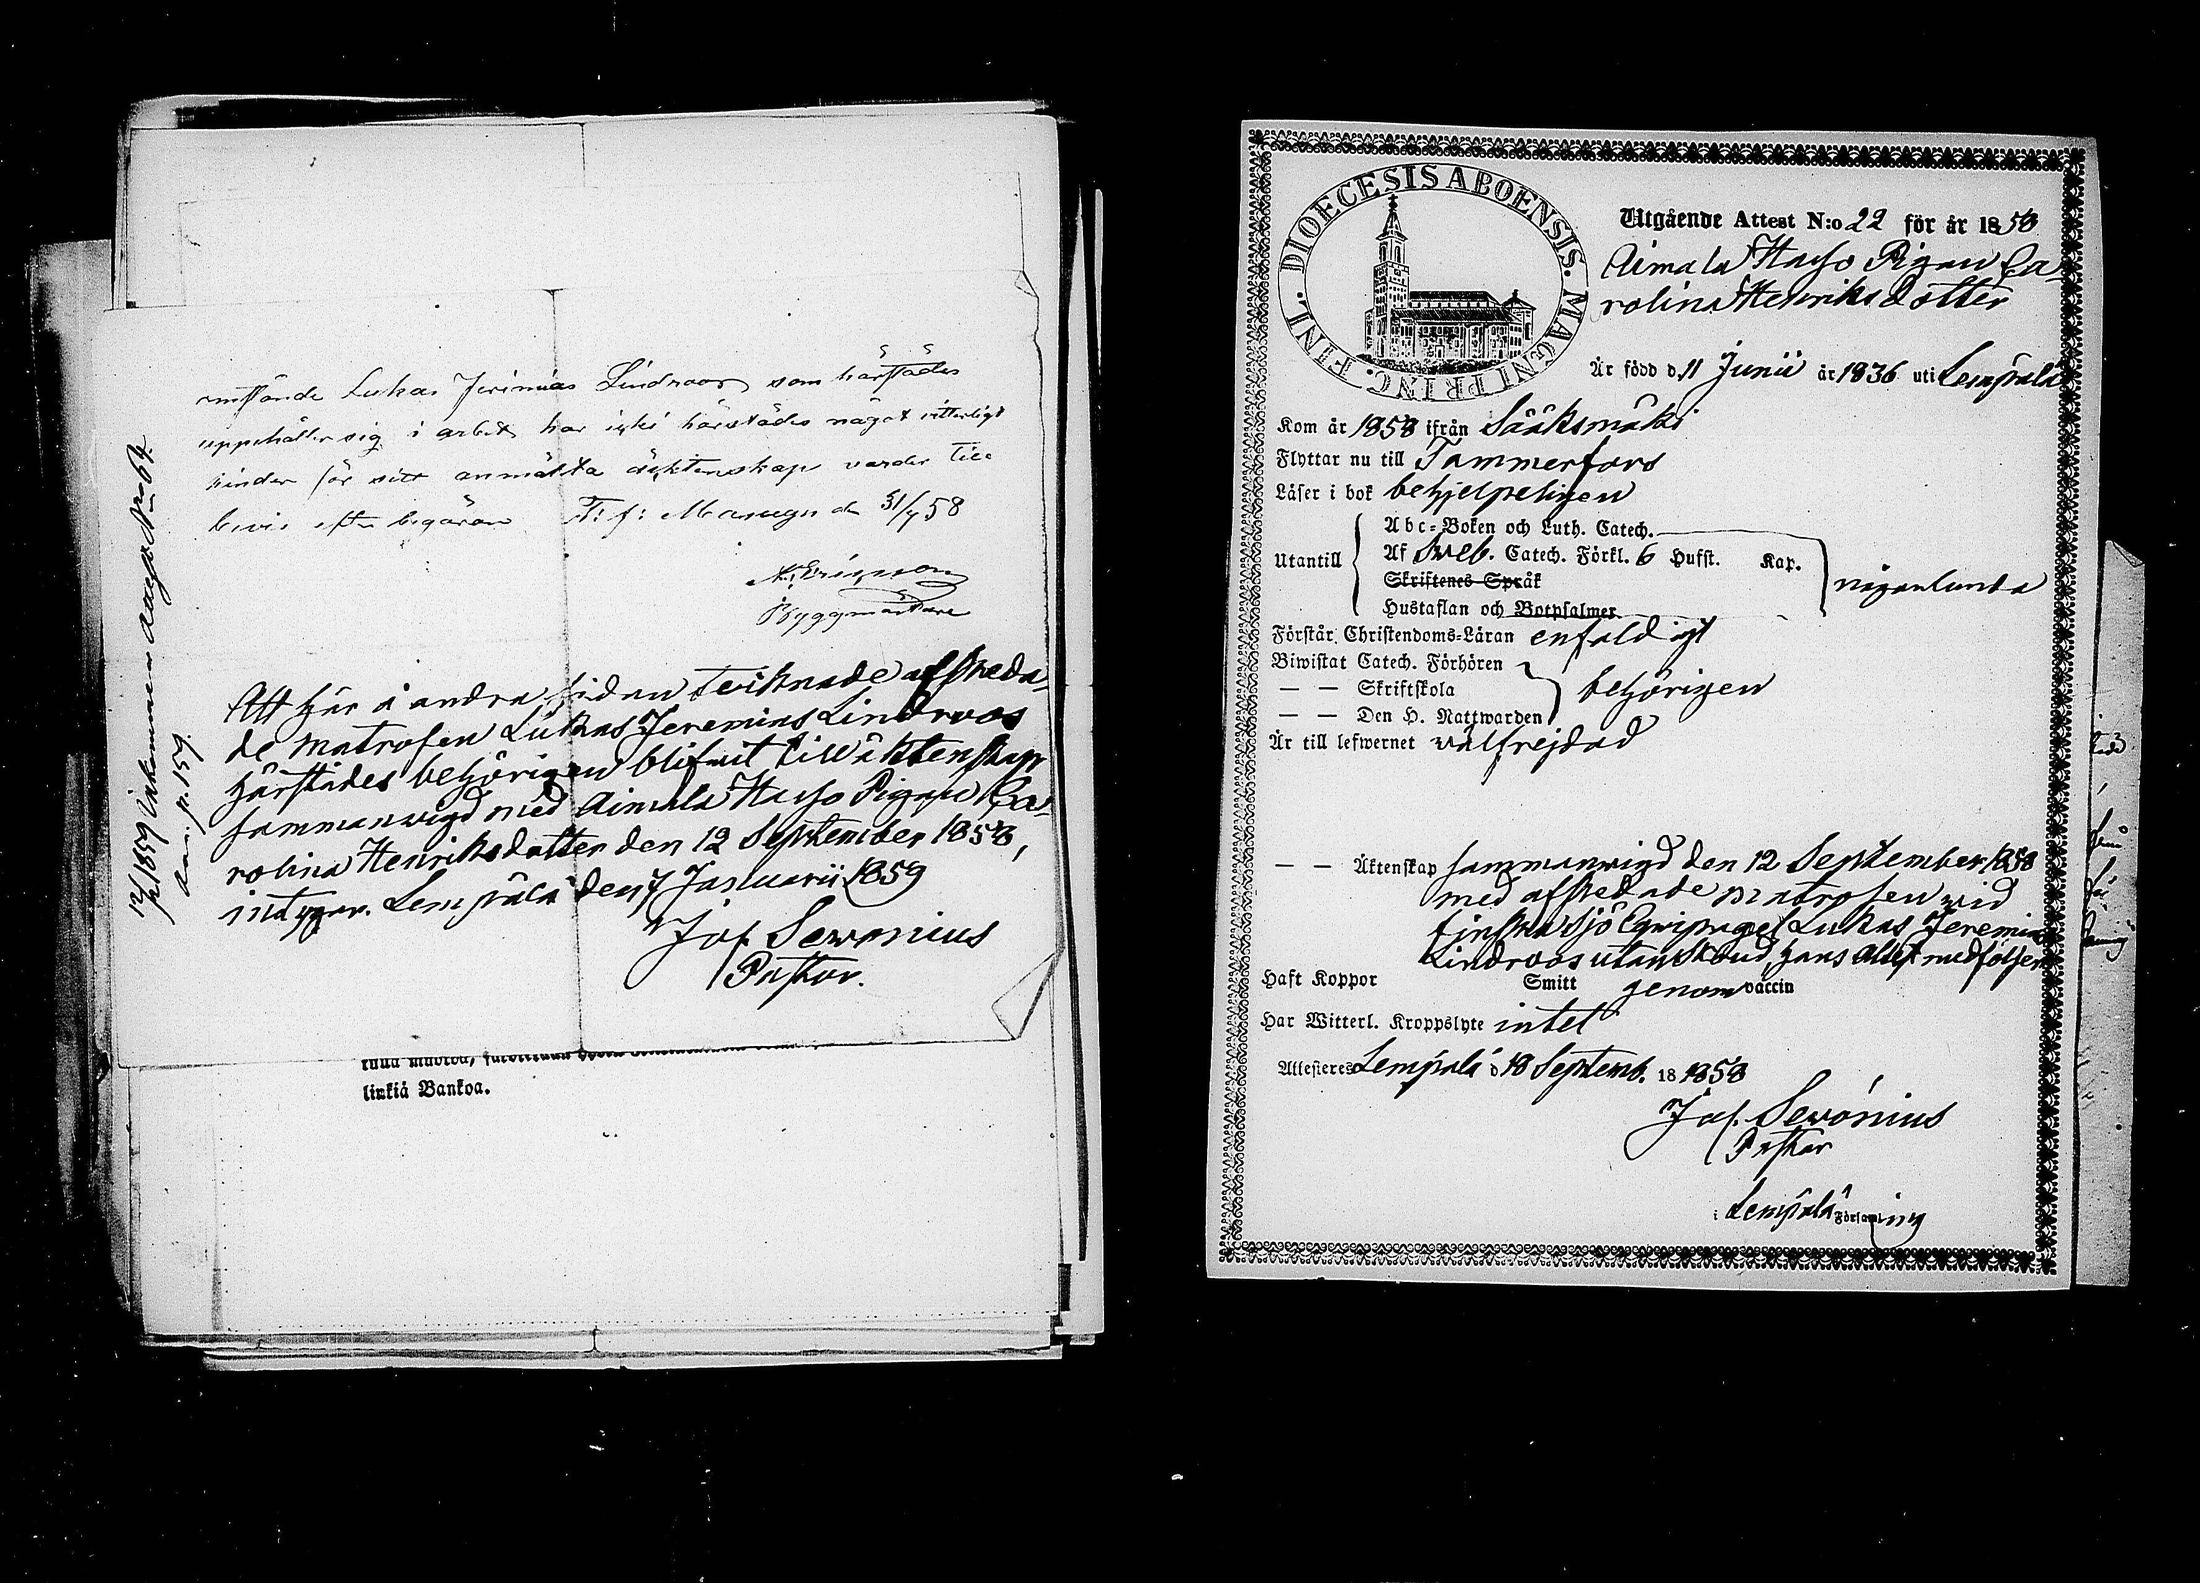 omstående Lukas Jerimias Lindroos som härstädes
uppehåller sig i arbet har icke härstädes något vitterligt
hinder för sitt anmälta äktenskap varder till
bevis efter begäran T: f: den 31/7 58
A: Ericson
Byggmästare
Att här å andra sidan tecknade afskeda-
de matrosen Lukas Jeremias Lindroos
härstädes behörigen blifwit till äktenskap
sammanwigd med Aimala Hauho Pigan Ca-
rolina Henriksdotter den 12 September 1858,
intygar. Lempälä den 7 Januarii 1859
Jos. Sewonius
Pastor.
12/2 1859 N:o 64.
p. 159.
linkiä Bankoa.
DIOECESIS ABOENSIS. MAGNI PRINC. FINL.
Utgående Attest N:o 22 för år 1858
Aimala Pigan Ca-
rolina Henriksdotter
Är född d. 11 Junii år 1836 uti Lempälä
Kom år 1858 ifrån Sääksmäki
Flyttar nu till Tammerfors
Läser i bok behjelpeligen
Utantill
Abc-Boken och Luth. Catech.
Af Sweb. Catech. Förkl. 6 Hufst. Kap.
Skriftenes Språk
Hustaflan och Botpsalmer
någorlunda
Förstår Christendoms-Läran enfaldigt
Biwistat Catech. Förhören
— — Skriftskola
— — Den H. Nattwarden
behörigen
Är till lefwernet wälfrejdad
— — Äktenskap sammanwigd den 12 September 1858
med afskedade matrosen wid
finska sjö Eqwipaget Lukas Jeremias
Lindroos utan skoud, hans attest medföljer
Haft Koppor Smitt genom vaccin
Har Witterl. Kroppslyte intet
Attesteres Lempälä d. 18 Septemb. 18 1858
Jos. Sewónius
Pastor
i Lempälä Församl ing